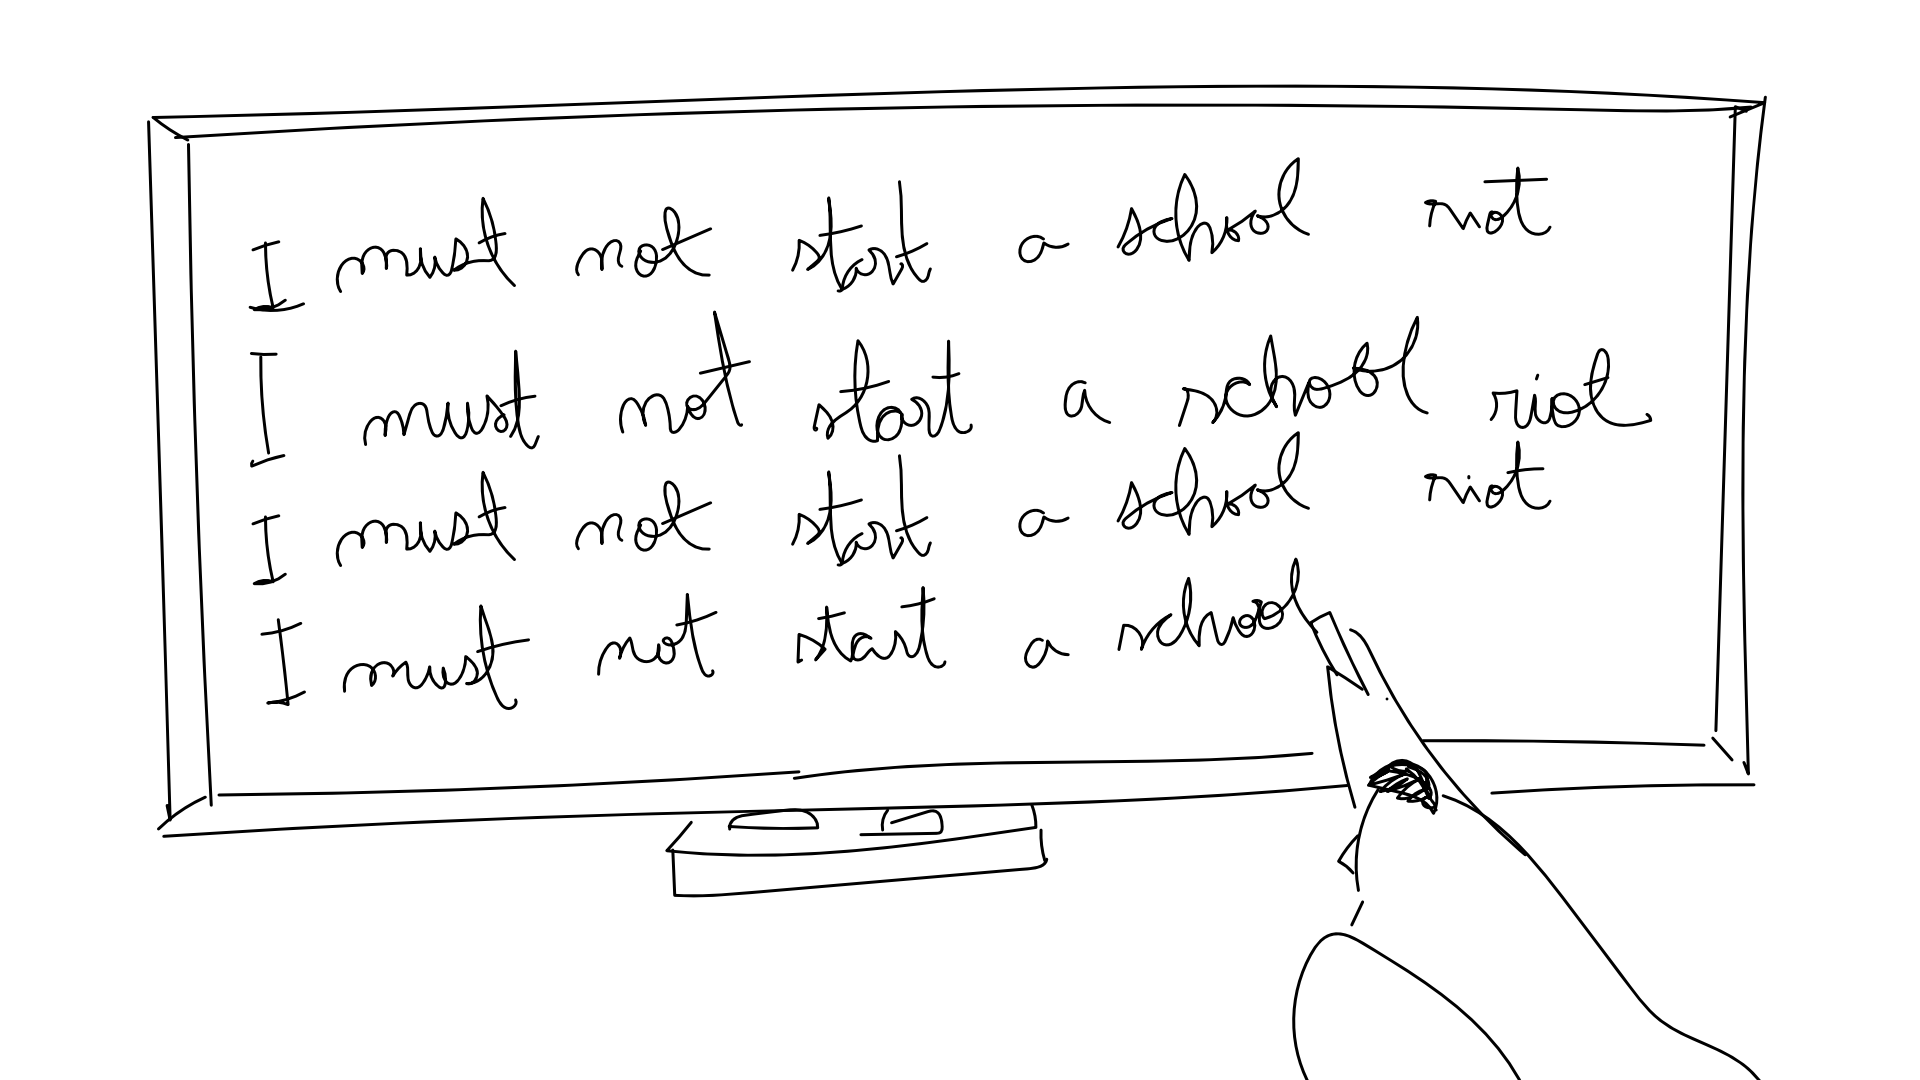 I must not start a school riot
I must not start a school riot
I must not start a school riot
I must not start a school